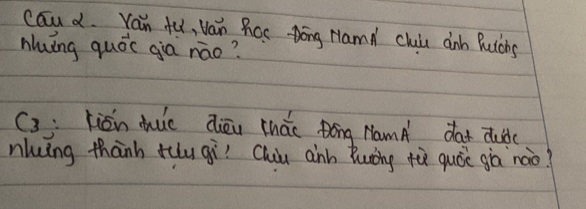 Câu 2. Văn tự, Văn học Đông Nam Á chịu ảnh hưởng
những quốc gia nào?
C3: Kiến trúc điêu khắc Đông Nam Á đạt được
những thành tựu gì? Chịu ảnh hưởng từ quốc gia nào?